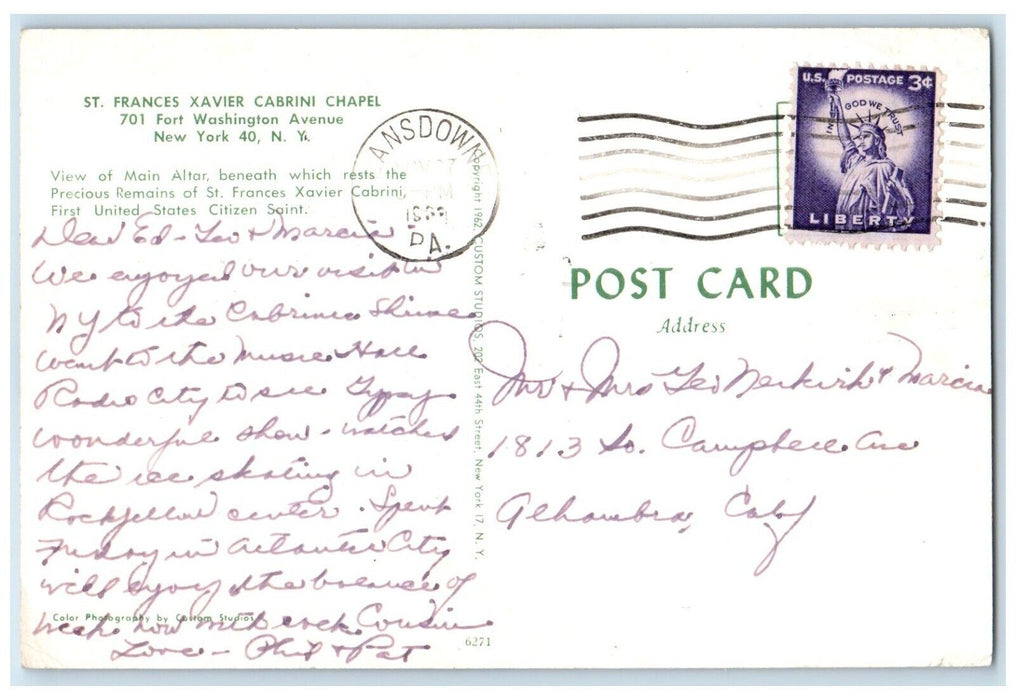 ST. FRANCES XAVIER CABRINI CHAPEL
701 Fort Washington Avenue
New York 40, N. Y.
View of Main Altar, beneath which rests the
Precious Remains of St. Frances Xavier Cabrini,
First United States Citizen Saint.
Dear Ed - Leo + Marcia
We enjoyed our visit in
NY to the Cabrini Shrine
went to the Music Hall
Radio City to see Gypsy
wonderful show - watched
the ice skating in
Rockefellow center. Spent
Friday in Atlantic City
will enjoy the balance of
week now with each Cousin
Love - Phil + Pat
Color Photography by Custom Studios
6271
Copyright 1962, CUSTOM STUDIOS, 202 East 44th Street, New York 17, N. Y.
ANSDOWN
PM
PA.
U.S. POSTAGE 3¢
IN GOD WE TRUST
LIBERTY
POST CARD
Address
Mr + Mrs Leo Neikirk + Marcia
1813 So. Campbell Ave
Alhambra, Calif